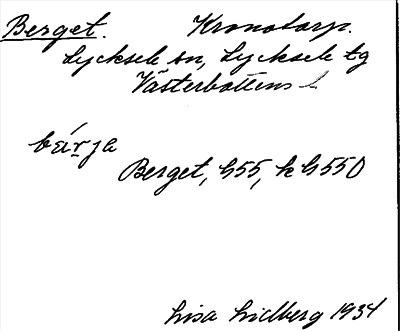 Berget. Kronotorp.
Lycksele sn, Lycksele tg
Västerbottens l
bärja
Berget, h55, k h550
Lisa Lidberg 1934